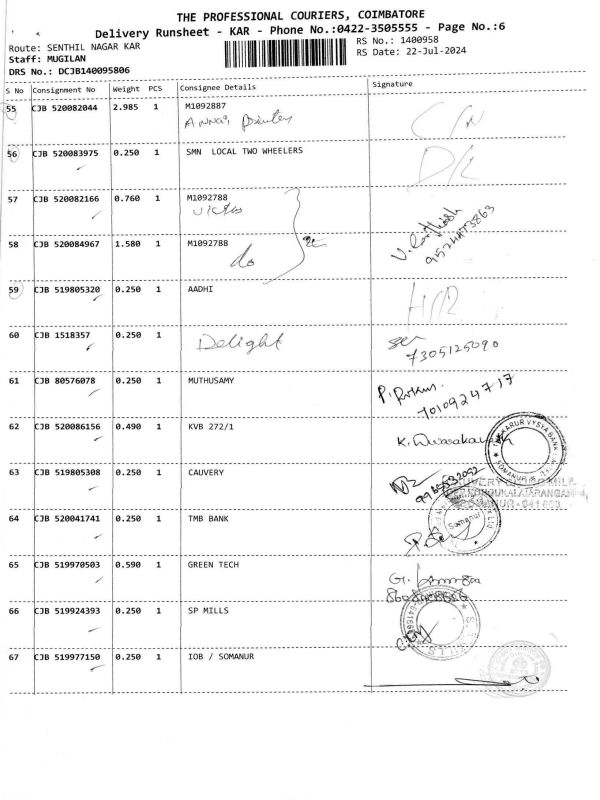 THE PROFESSIONAL COURIERS, COIMBATORE
Delivery Runsheet - KAR - Phone No.:0422-3505555 - Page No.:6
Route: SENTHIL NAGAR KAR
RS No.: 1400958
Staff: MUGILAN
RS Date: 22-Jul-2024
DRS No.: DCJB140095806
S No Consignment No Weight PCS Consignee Details Signature
55 CJB 520082044 2.985 1 M1092887
56 CJB 520083975 0.250 1 SMN LOCAL TWO WHEELERS D/L
57 CJB 520082166 0.760 1 M1092788
58 CJB 520084967 1.580 1 M1092788
do
59 CJB 519805320 0.250 1 AADHI
60 CJB 1518357 0.250 1 Delight
7305125090
61 CJB 80576078 0.250 1 MUTHUSAMY
7010924717
62 CJB 520086156 0.490 1 KVB 272/1
63 CJB 519805308 0.250 1 CAUVERY
64 CJB 520041741 0.250 1 TMB BANK
Somanur
65 CJB 519970503 0.590 1 GREEN TECH
66 CJB 519924393 0.250 1 SP MILLS
67 CJB 519977150 0.250 1 IOB / SOMANUR